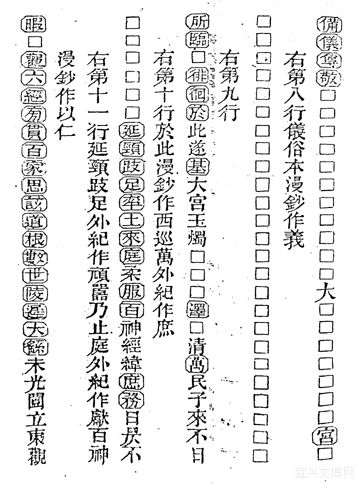 備儀尊敬□□□□□□□□□□大□□□□□□宮□
右第八行儀俗本漫鈔作義
□□□□□□□□□□□□□□□□□□□□□□□
右第九行
所臨□徘徊於此遂基大宮玉燭□□□澤□清萬民子來不日
右第十行於此漫鈔作西巡萬外紀作庶
□□□□□延頸跂足率土來庭柔服百神經緯庶務日昃不
右第十一行延頸跂足外紀作頑嚚乃止庭外紀作獻百神
漫鈔作以仁
暇□觀六經旁貫百家思該道根數世陵遲大繇未光闡立東觀
宜兴文博网